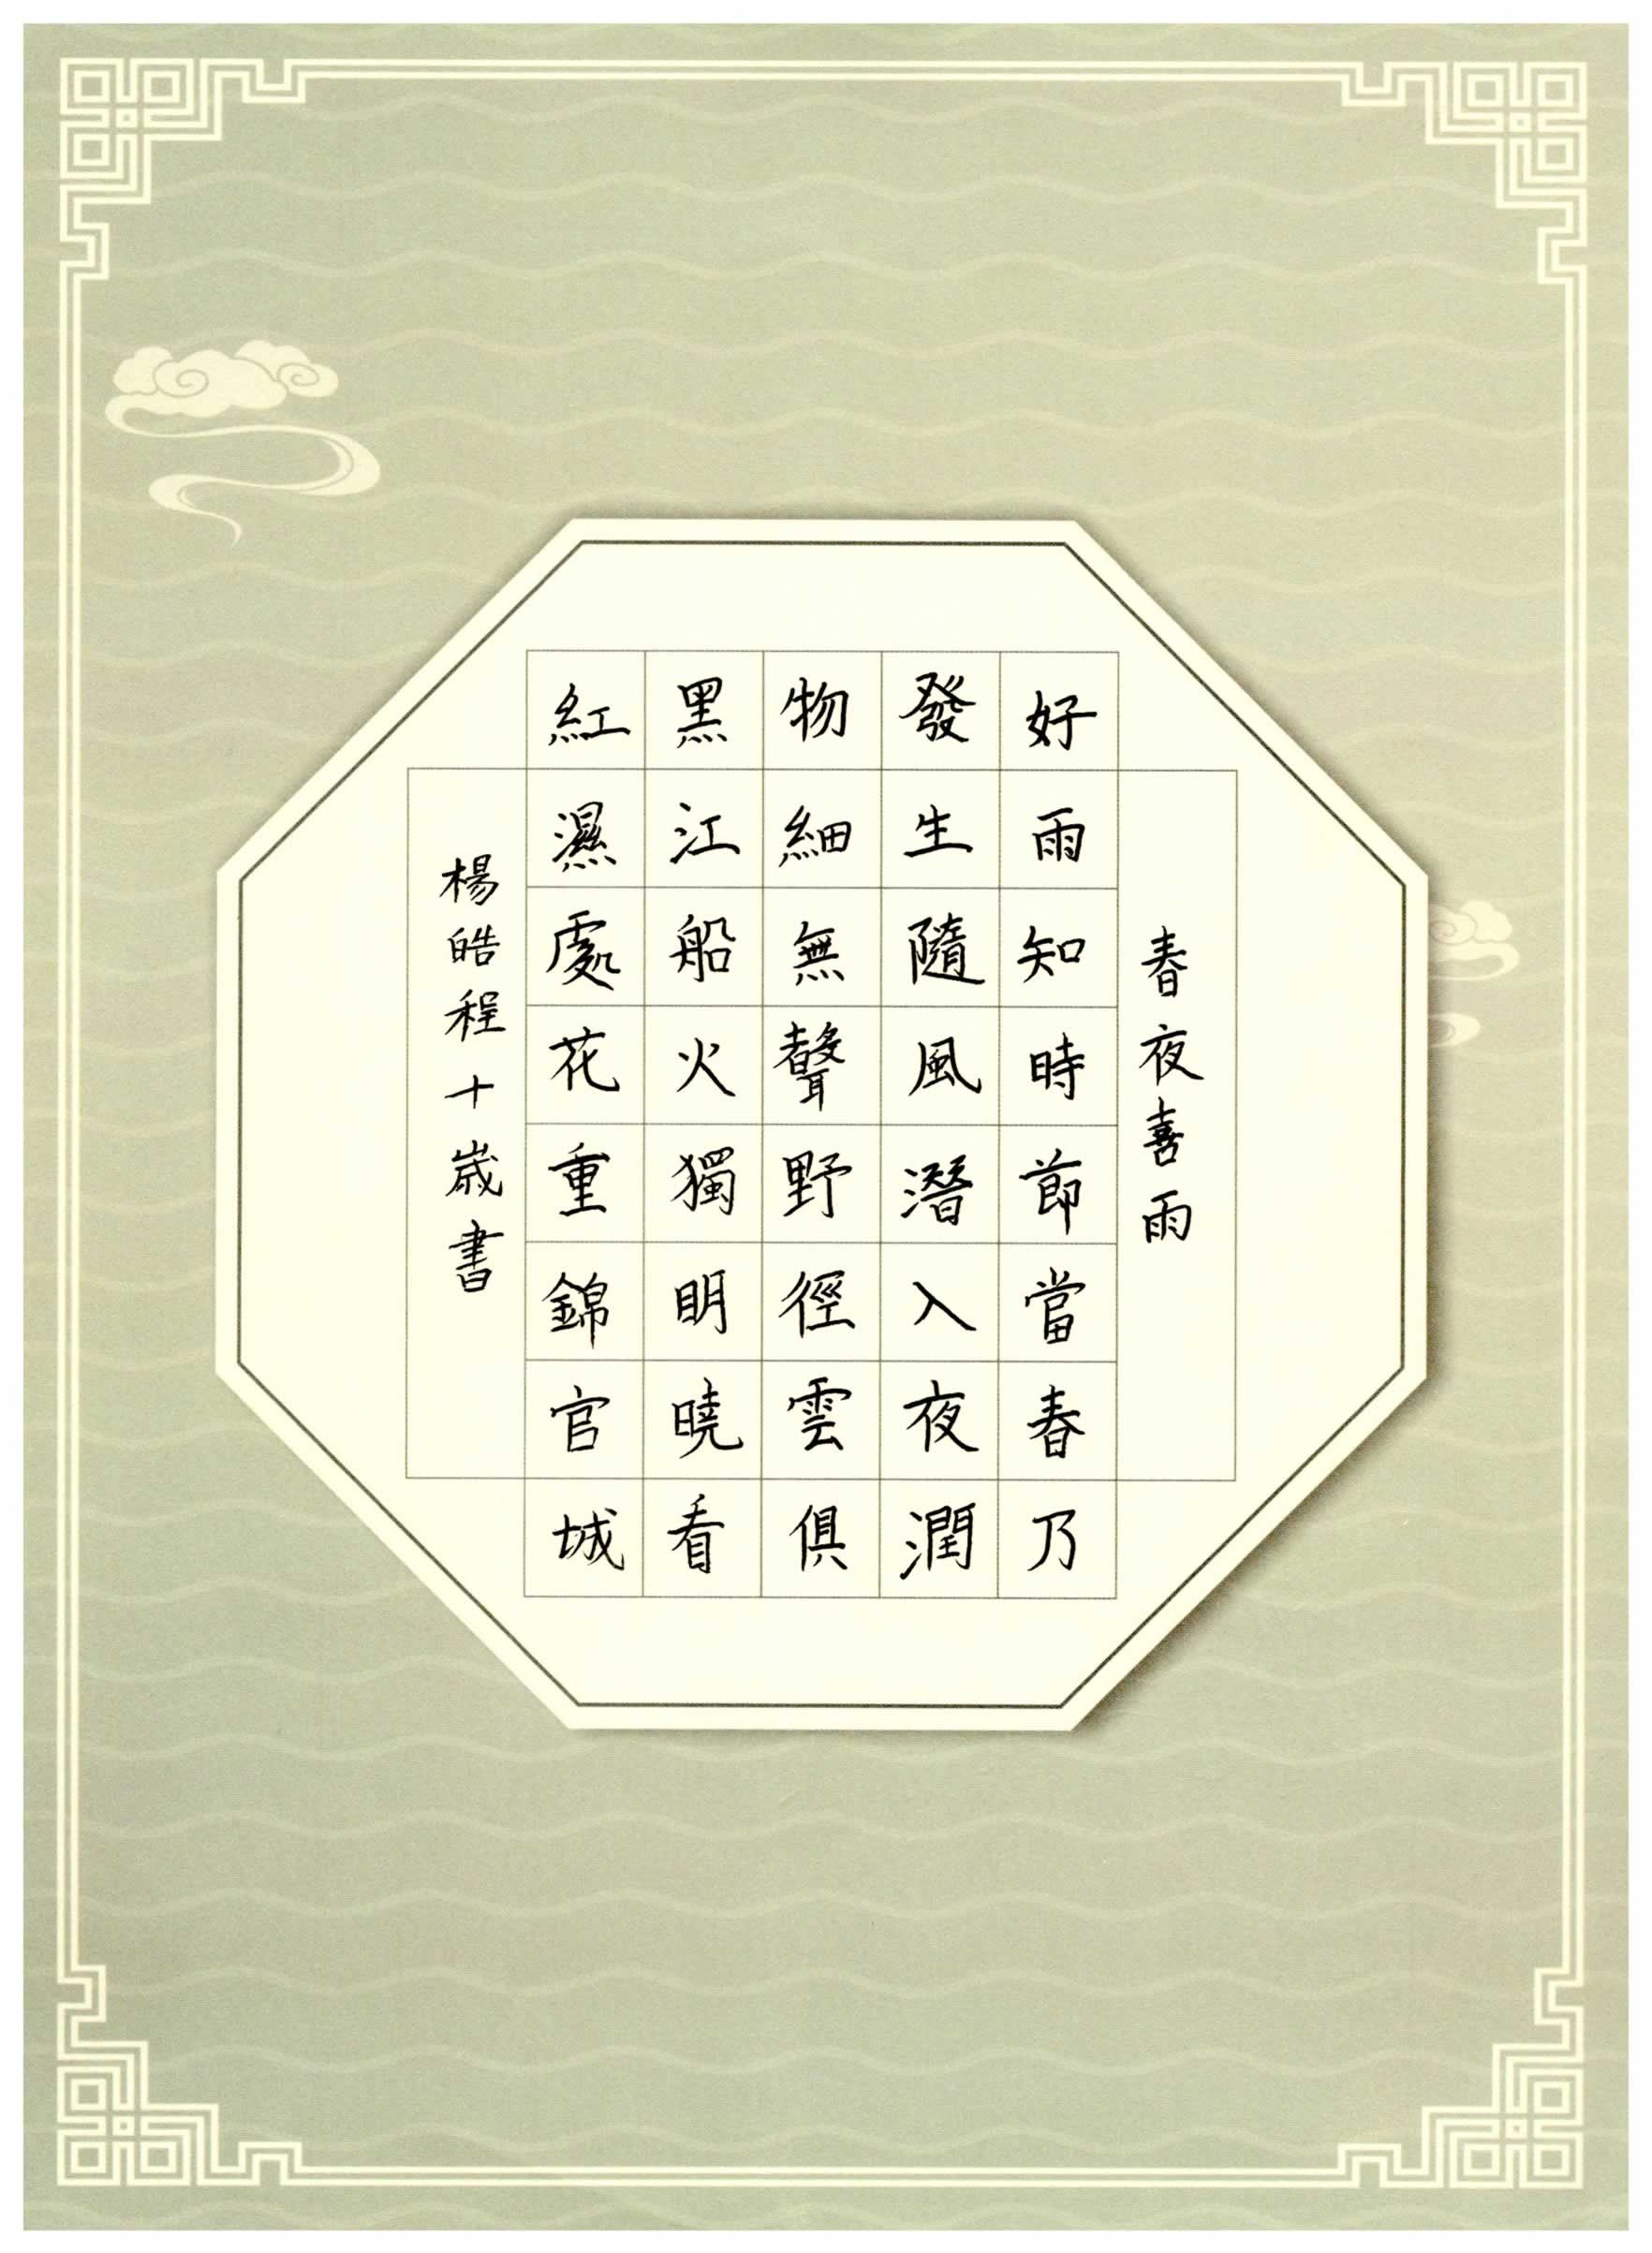 春夜喜雨
好雨知時節當春乃
發生隨風潛入夜潤
物細無聲野徑雲俱
黑江船火獨明曉看
紅濕處花重錦官城
楊皓程十歲書